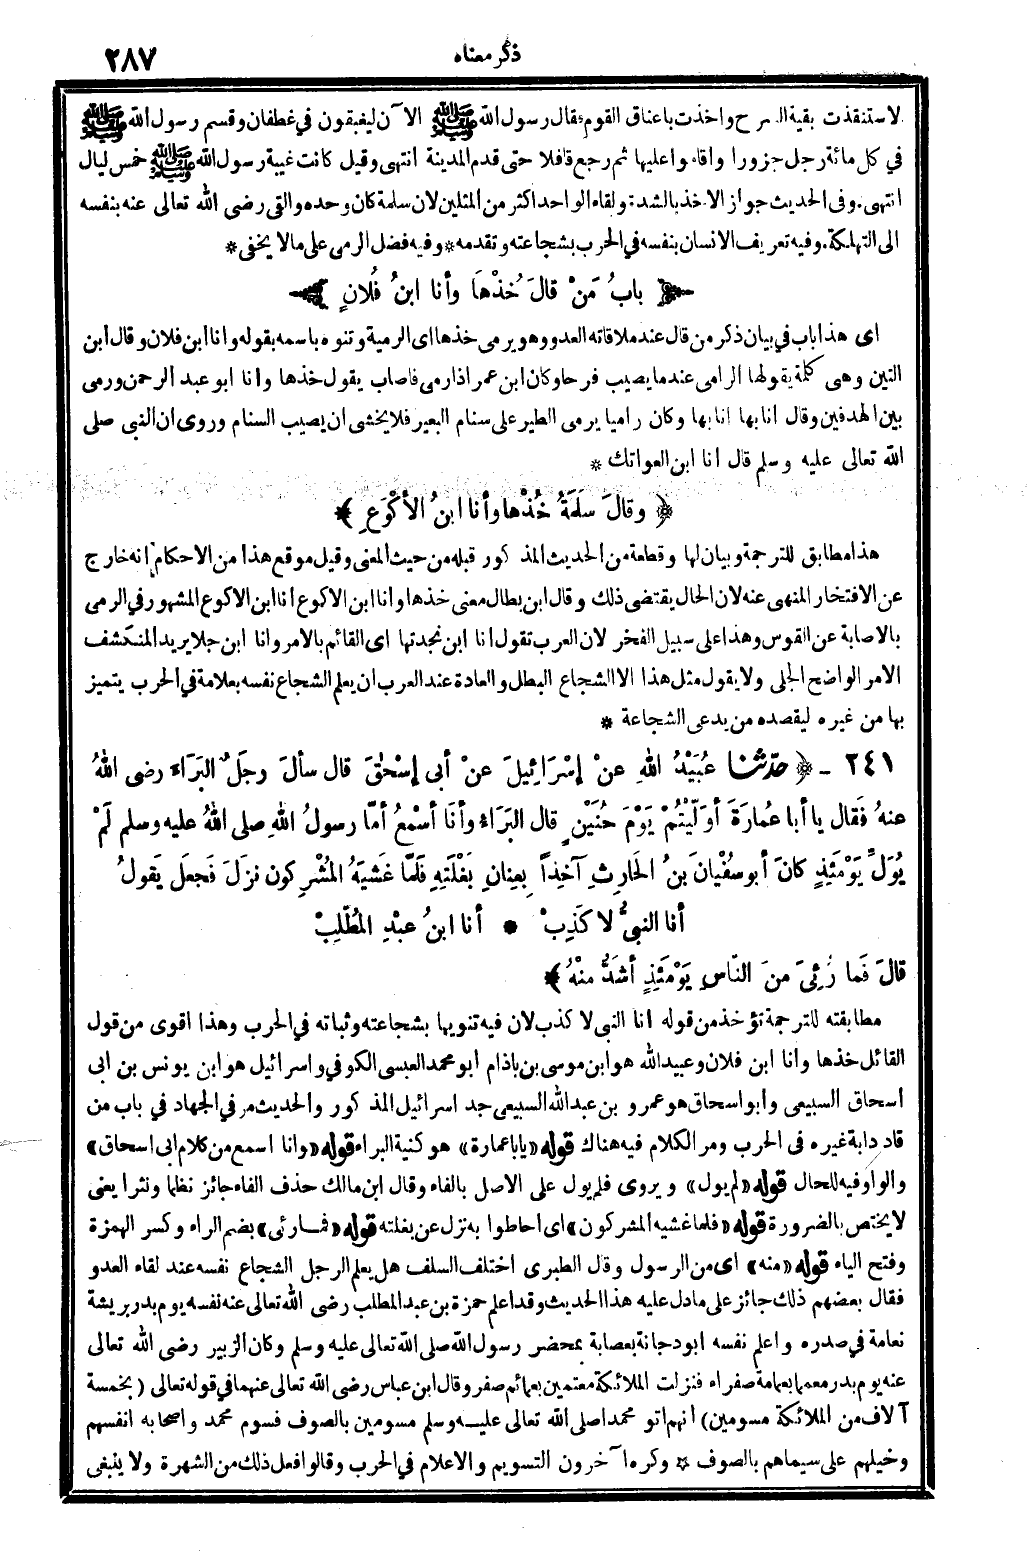 ذكر معناه ٢٨٧
لاستنقذت بقية السرح واخذت باعناق القوم فقال رسول الله ﷺ الآن ليغبقون في غطفان وقسم رسول الله ﷺ
في كل مائة رجل جزورا واقاموا عليها ثم رجع قافلا حتى قدم المدينة انتهى وقيل كانت غيبة رسول الله ﷺ خمس ليال
انتهى. وفى الحديث جواز الاخذ بالشدة ولقاء الواحد اكثر من المثلين لان سلمة كان وحده والقى رضى الله تعالى عنه بنفسه
الى التهلكة. وفيه تعريف الانسان بنفسه في الحرب بشجاعته وتقدمه * وفيه فضل الرمى على ما لا يخفى *
﴿ بابُ مَنْ قالَ خُذْهَا وأنا ابنُ فُلانٍ ﴾
اى هذا باب في بيان ذكر من قال عند ملاقاته العدو وهو يرمى خذها اى الرمية وتنوه باسمه بقوله وانا ابن فلان وقال ابن
التين وهى كلمة يقولها الرامى عندما يصيب فرحا وكان ابن عمر اذا رمى فاصاب يقول خذها وانا ابو عبد الرحمن ورمى
بين الهدفين وقال انا بها انا بها وكان راميا يرمى الطير على سنام البعير فلا يخشى ان يصيب السنام وروى ان النبى صلى
الله تعالى عليه وسلم قال انا ابن العواتك *
﴿ وقالَ سَلَمَةُ خُذْها وأنا ابنُ الأكْوَعِ ﴾
هذا مطابق للترجمة وبيان لها وقطعة من الحديث المذكور قبله من حيث المعنى وقيل موقع هذا من الاحكام انه خارج
عن الافتخار المنهى عنه لان الحال يقتضى ذلك وقال ابن بطال معنى خذها وانا ابن الاكوع انا ابن الاكوع المشهور في الرمى
بالاصابة عن القوس وهذا على سبيل الفخر لان العرب تقول انا ابن نجدتها اى القائم بالامر وانا ابن جلا يريد المنكشف
الامر الواضح الجلى ولا يقول مثل هذا الا الشجاع البطل والعادة عند العرب ان يعلم الشجاع نفسه بعلامة في الحرب يتميز
بها من غيره ليقصده من يدعى الشجاعة *
٢٤١ - ﴿ حدّثنا عُبَيْدُ اللهِ عنْ إسْرَائِيلَ عنْ أبى إسْحٰقَ قال سألَ رجلٌ البَرَاءَ رضى اللهُ
عنهُ فَقال يا أبا عُمارَةَ أوَلَّيْتُمْ يَوْمَ حُنَيْنٍ قال البَرَاءُ وأنَا أسْمَعُ أمَّا رسولُ اللهِ صلى اللهُ عليه وسلم لَمْ
يُوَلِّ يَوْمَئِذٍ كانَ أبو سُفْيانَ بنُ الحَارِثِ آخِذًا بِعِنانِ بَغْلَتِهِ فَلَمَّا غَشِيَهُ المُشْرِكون نَزَلَ فَجعلَ يَقولُ
أنا النبىُّ لا كَذِبْ * أنا ابنُ عبْدِ المُطَّلِبْ
قالَ فَما رُئِىَ منَ النَّاسِ يَوْمَئِذٍ أشَدُّ منْهُ ﴾
مطابقته للترجمة تؤخذ من قوله انا النبى لا كذب لان فيه تنويها بشجاعته وثباته في الحرب وهذا اقوى من قول
القائل خذها وانا ابن فلان وعبيد الله هو ابن موسى بن باذام ابو محمد العبسى الكوفي واسرائيل هو ابن يونس بن ابى
اسحاق السبيعى وابو اسحاق هو عمرو بن عبد الله السبيعى جد اسرائيل المذكور والحديث مر في الجهاد في باب من
قاد دابة غيره فى الحرب ومر الكلام فيه هناك قوله «ياباعمارة» هو كنية البراء قوله «وانا اسمع من كلام ابى اسحاق»
والواو فيه للحال قوله «لم يول» ويروى فلم يول على الاصل بالفاء وقال ابن مالك حذف الفاء جائز نظما ونثرا يعنى
لا يختص بالضرورة قوله «فلما غشيه المشركون» اى احاطوا به نزل عن بغلته قوله «فمارئى» بضم الراء وكسر الهمزة
وفتح الياء قوله «منه» اى من الرسول وقال الطبرى اختلف السلف هل يعلم الرجل الشجاع نفسه عند لقاء العدو
فقال بعضهم ذلك جائز على ما دل عليه هذا الحديث وقد اعلم حمزة بن عبد المطلب رضى الله تعالى عنه نفسه يوم بدر بريشة
نعامة في صدره واعلم نفسه ابو دجانة بعصابة بمحضر رسول الله صلى الله تعالى عليه وسلم وكان الزبير رضى الله تعالى
عنه يوم بدر معمما بعمامة صفراء فنزلت الملائكة معتمين بعمائم صفر وقال ابن عباس رضى الله تعالى عنهما في قوله تعالى (بخمسة
آلاف من الملائكة مسومين) انهم اتو محمدا صلى الله تعالى عليه وسلم مسومين بالصوف فسوم محمد واصحابه انفسهم
وخيلهم على سيماهم بالصوف * وكره آخرون التسويم والاعلام في الحرب وقالوا فعل ذلك من الشهرة ولا ينبغى